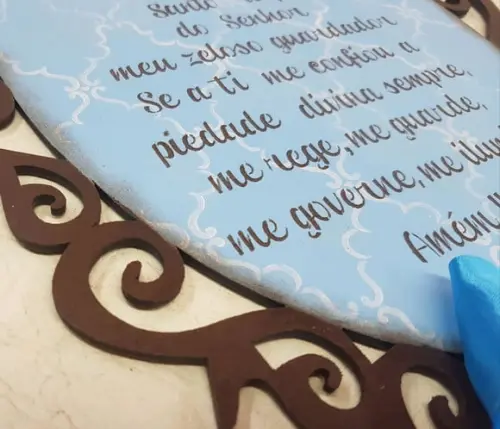 Santo
do Senhor
meu zeloso guardador
Se a ti me confiou a
piedade divina sempre,
me rege, me guarde,
me governe, me ilum
Amém